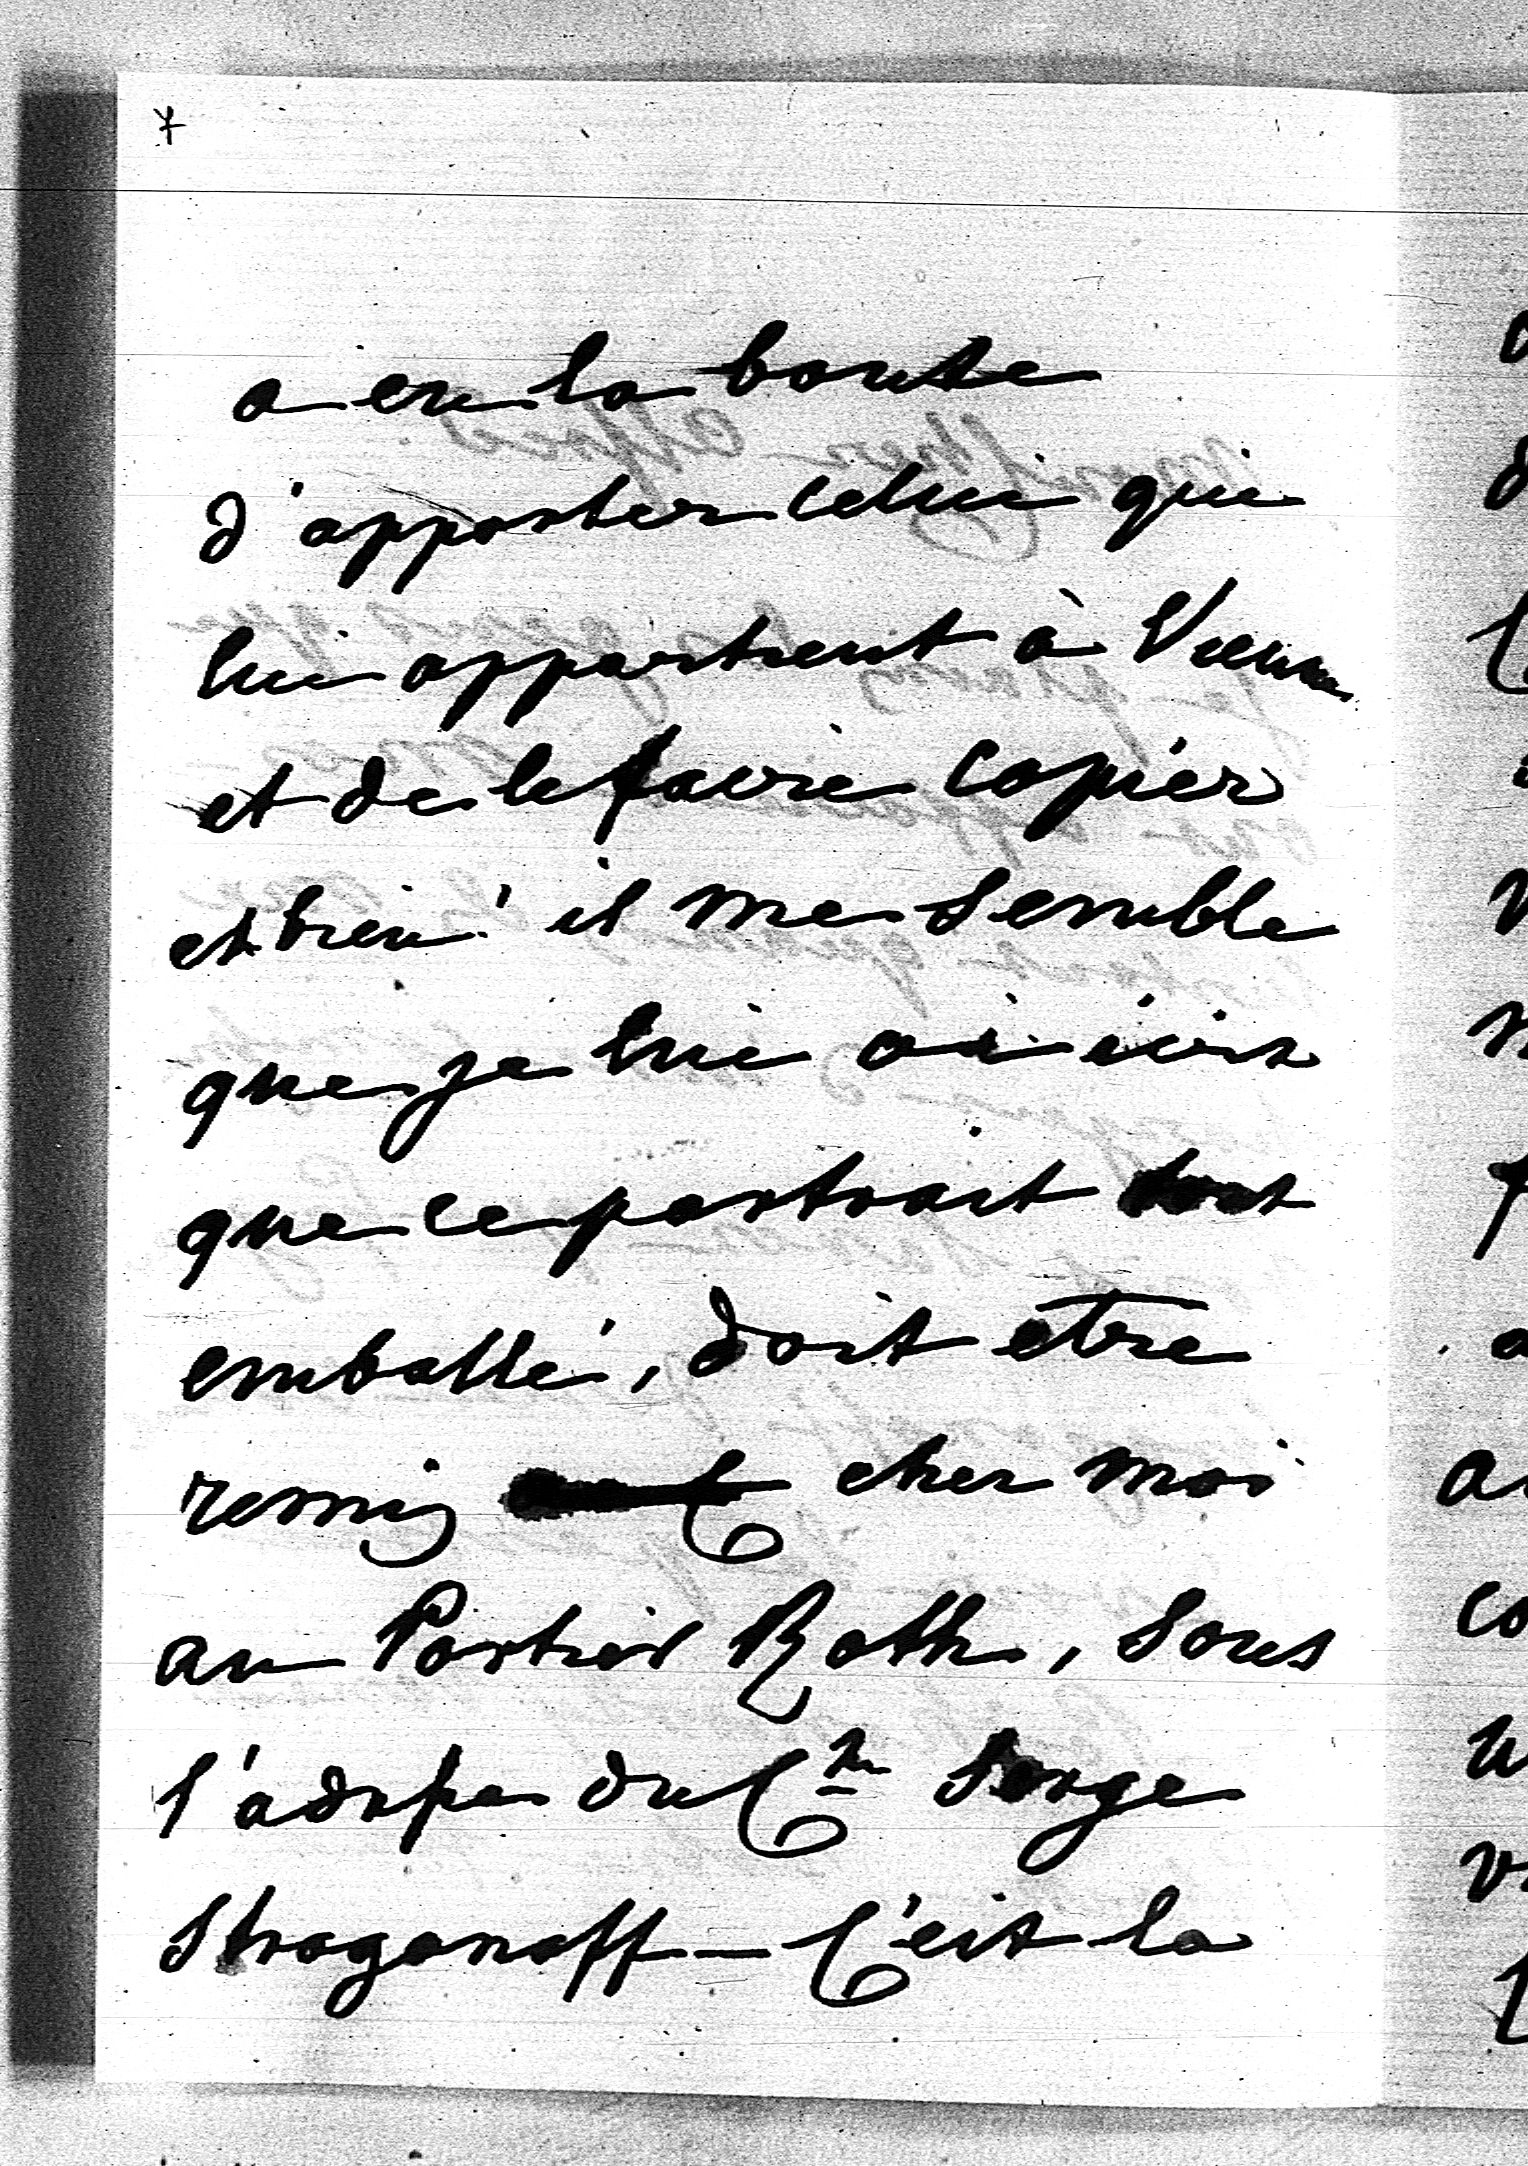 a eu la bonté
d'apporter celui qui
lui appartient à Vienne
et de le faire copier
et bien! il me semble
que je lui ai écrit
que ce portrait
emballé, doit etre
remis chez moi
au Portier Roth, sous
l'adresse du Cte Serge
Stroganoff – C'est la